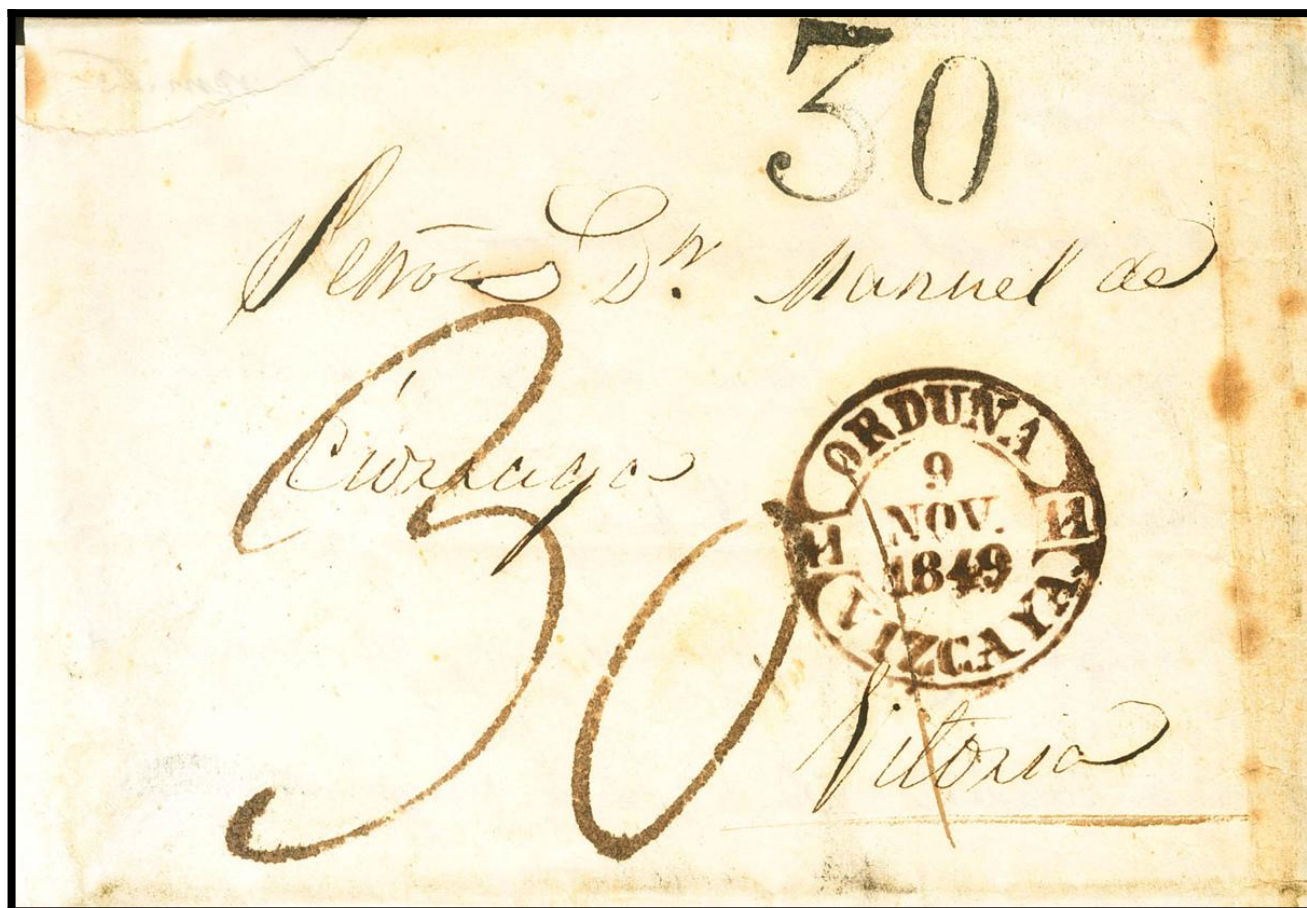 30
Señor Dn. Manuel de
Ciorraga
30
ORDUNA
9
NOV.
1849
H H
VIZCAYA.
Vitoria